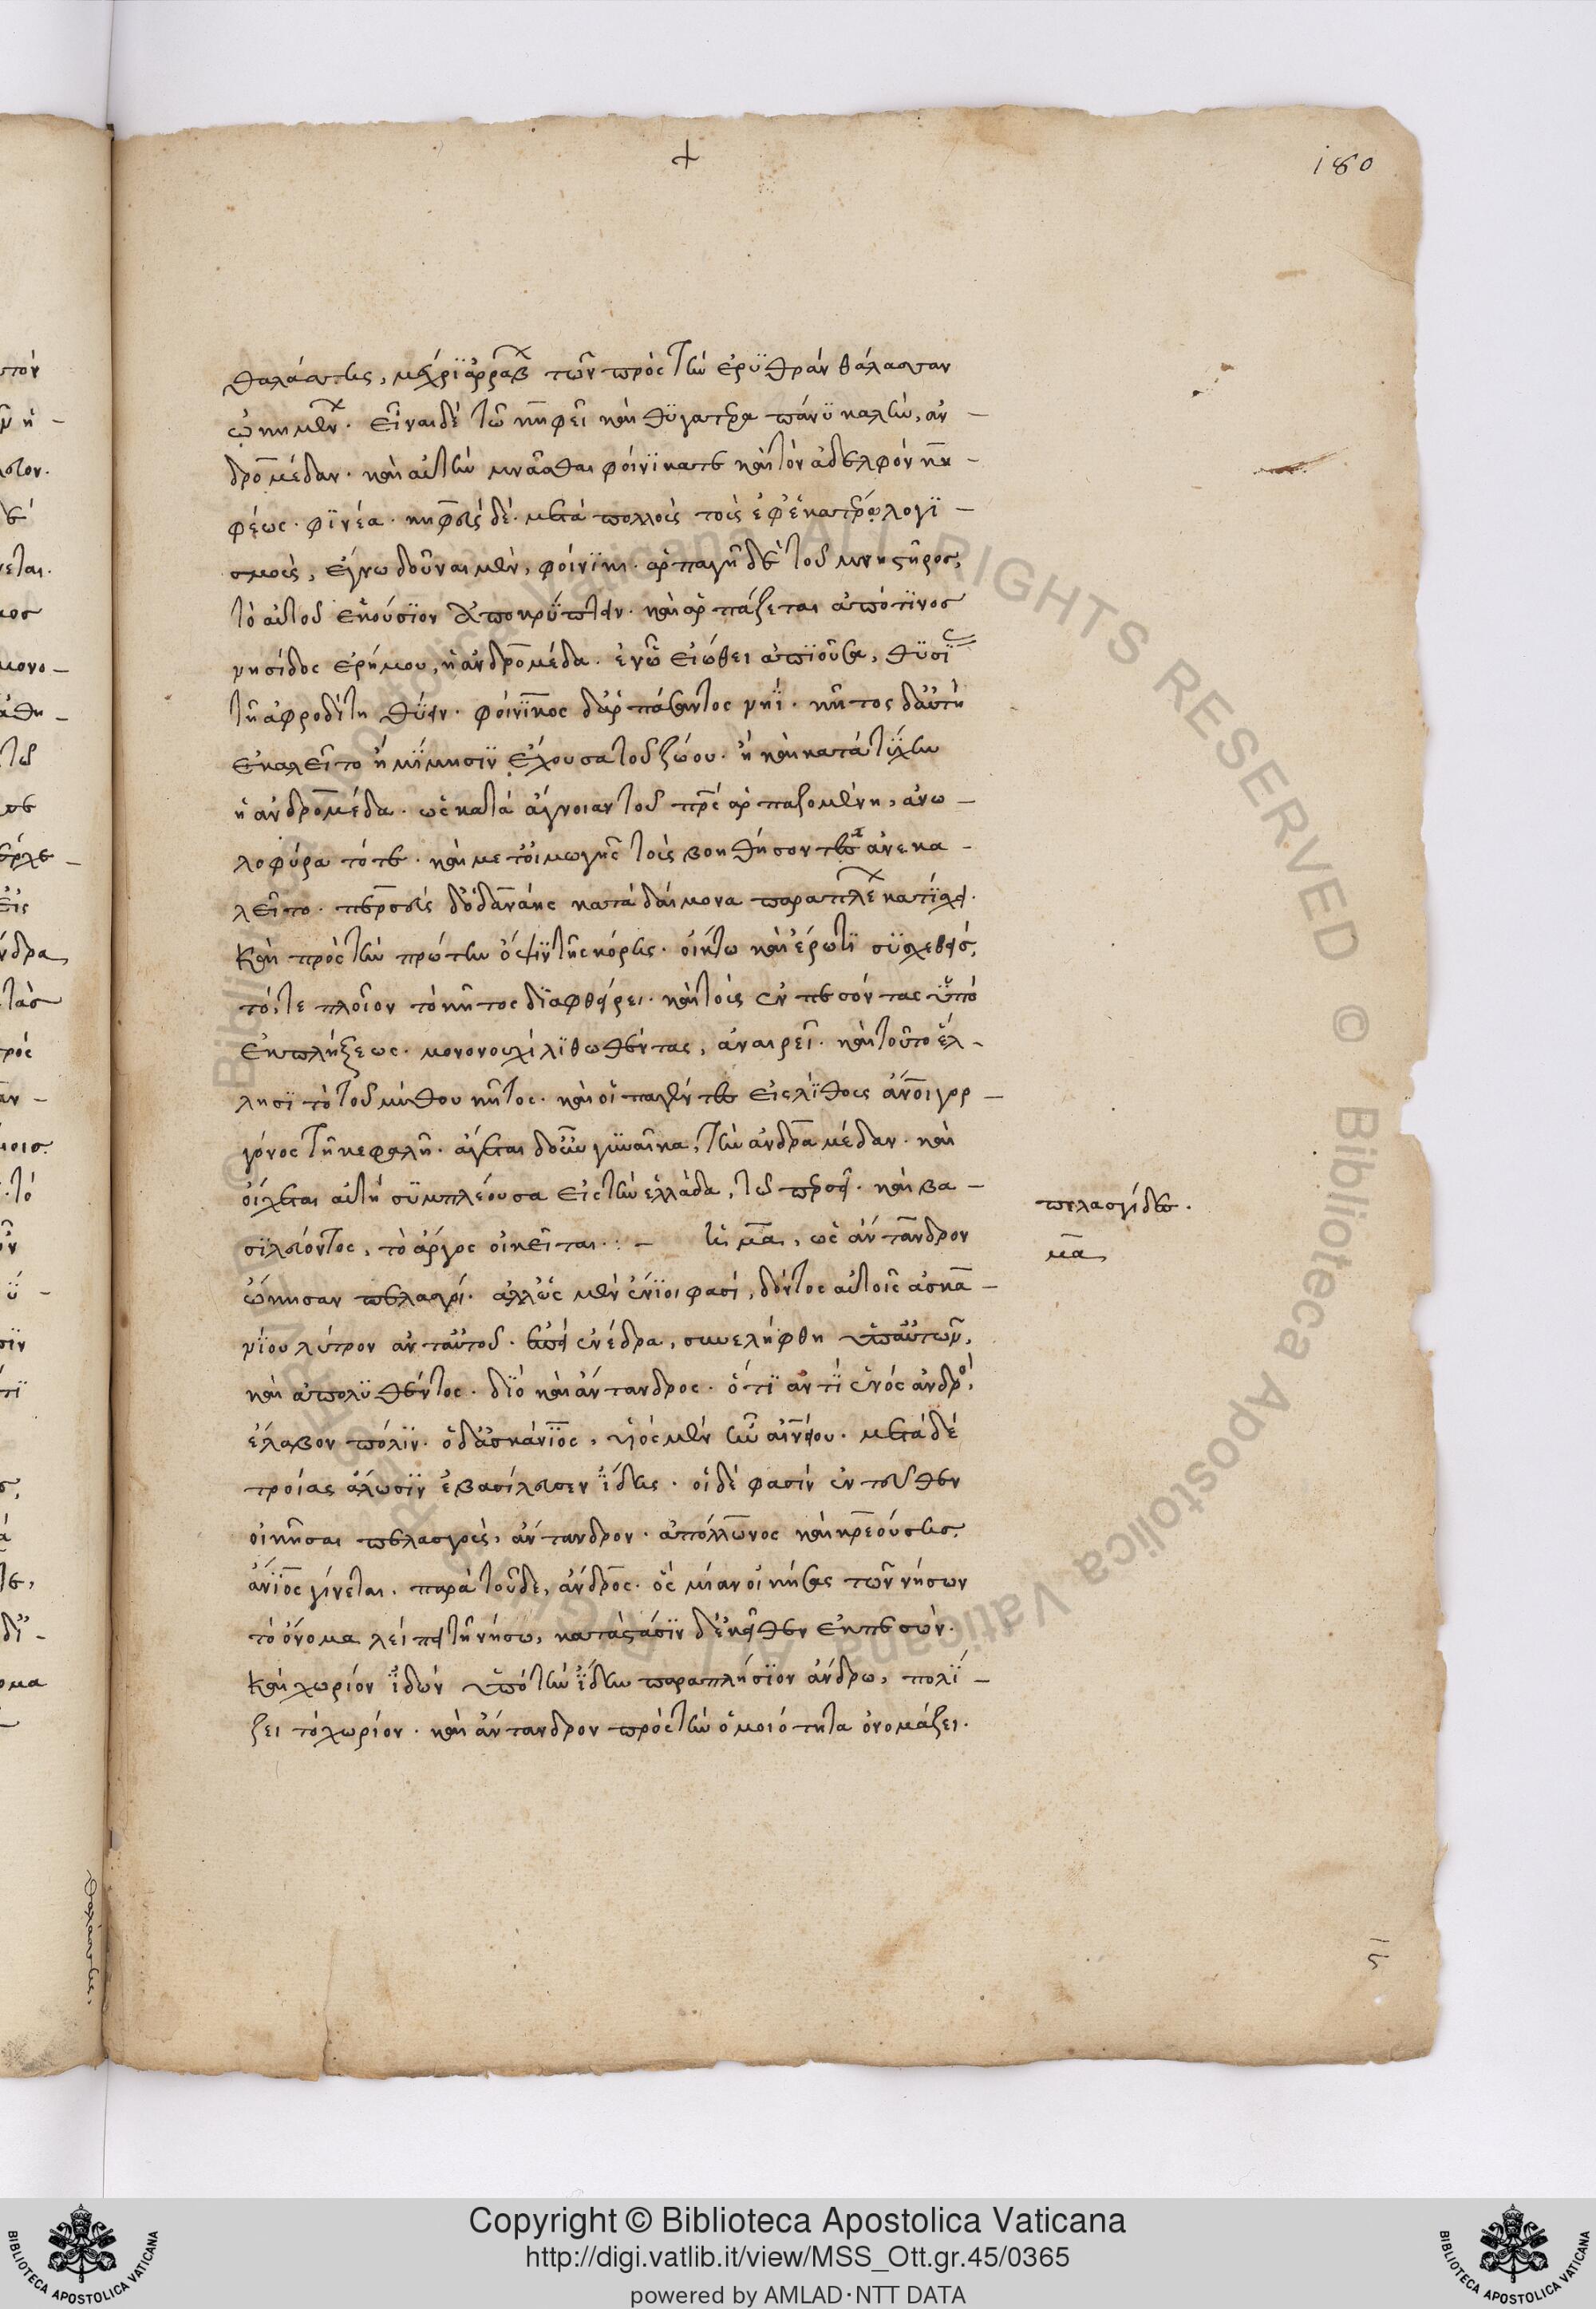 +
180
θαλάσσης, μέχρι ἀρράβ τῶν πρὸς τὴν ἐρυθρὰν θάλασσαν
ᾠκημέν. εἶναι δὲ τῶ κηφεῖ καὶ θυγατέρα πάνυ καλὴν, ἀν-
δρομέδαν. καὶ αὐτὴν μνᾶσθαι φοίνικά τε καὶ τὸν ἀδελφὸν κη-
φέως. φινέα. κηφεὺς δὲ. μετὰ πολλοὺς τοὺς ἐφ' ἑκατέρω λογι-
σμοὺς, ἔγνω δοῦναι μὲν, φοίνικι. ἁρπαγῆ δὲ τοῦ μνηστῆρος,
τὸ αὐτοῦ ἑκούσιον ἀποκρύπτειν. καὶ ἁρπάζεται ἀπό τινος
νησίδος ἐρήμου, ἡ ἀνδρομέδα. ἐν ᾧ εἰώθει ἀπιοῦσα, θυσί
τῆ ἀφροδίτη θύειν. φοίνικος δ' ἁρπάσαντος νηΐ. κῆτος δ' αὐτὴ
ἐκαλεῖτο ἢ μίμησιν ἔχουσα τοῦ ζώου. ἢ καὶ κατὰ τύχην
ἡ ἀνδρομέδα. ὡς κατὰ ἄγνοιαν τοῦ πρς ἁρπαζομένη, ἀνω-
λοφύρατό τε. καὶ μετ' οἰμωγῆς τοὺς βοηθήσοντας ἀνεκα-
λεῖτο. περσεὺς δ' ὁ δανάης κατὰ δαίμονα παραπλέ κατίσχει.
καὶ πρὸς τὴν πρώτην ὄψιν τῆς κόρης. οἴκτω καὶ ἔρωτι συσχεθείς,
τό, τε πλοῖον τὸ κῆτος διαφθείρει. καὶ τοὺς ἐμπεσόντας ὑπὸ
ἐκπλήξεως. μονονουχὶ λιθωθέντας, ἀναιρεῖ. καὶ τοῦτο ἕλ-
λησι τὸ τοῦ μύθου κῆτος. καὶ οἱ παγέντες εἰς λίθους ἄνοι γορ-
γόνος τῆ κεφαλῆ. ἄγεται δ' οὖν γυναῖκα, τὴν ἀνδρομέδαν. καὶ
οἴχεται αὐτὴ συμπλέουσα εἰς τὴν ἑλλάδα, τῶ περσεῖ. καὶ βα-
σιλεύοντος, τὸ ἄργος οἰκεῖται :- ἡ μα, ὡς ἄντανδρον
ᾤκησαν πελασγοί. ἀλλ' ὡς μὲν ἔνιοι φασὶ, δόντος αὐτοῖς ἀσκα-
νίου λύτρον ἀνθ' αὑτοῦ. ἐπεὶ ἐνέδρα, συνελήφθη ὑπ' αὐτῶν,
καὶ ἀπολυθέντος. διὸ καὶ ἄντανδρος. ὅτι ἀντὶ ἑνὸς ἀνδρό,
ἔλαβον πόλιν. ὁ δ' ἀσκάνιος, υἱὸς μὲν ἦν αἰνείου. μετὰ δὲ
τροίας ἅλωσιν ἐβασίλευσεν ἴδης. οἱ δέ φασὶν ἐντεῦθεν
οἰκῆσαι πελασγοὺς, ἄντανδρον. ἀπόλλωνος καὶ κρεούσης.
ἄνιος γίνεται. παρὰ τοῦδε, ἄνδρος. ὃς μίαν οἰκήσας τῶν νήσων
τὸ ὄνομα λείπει τῆ νήσω, κατὰ στάσιν δ' ἐκεῖθεν ἐκπεσών.
καὶ χωρίον ἰδὼν ὑπὸ τὴν ἴδην παραπλήσιον ἄνδρω, πολί-
ζει τὸ χωρίον. καὶ ἄντανδρον πρὸς τὴν ὁμοιότητα ὀνομάζει.
πελασγίδες.
μα
Copyright © Biblioteca Apostolica Vaticana
http://digi.vatlib.it/view/MSS_Ott.gr.45/0365
powered by AMLAD·NTT DATA